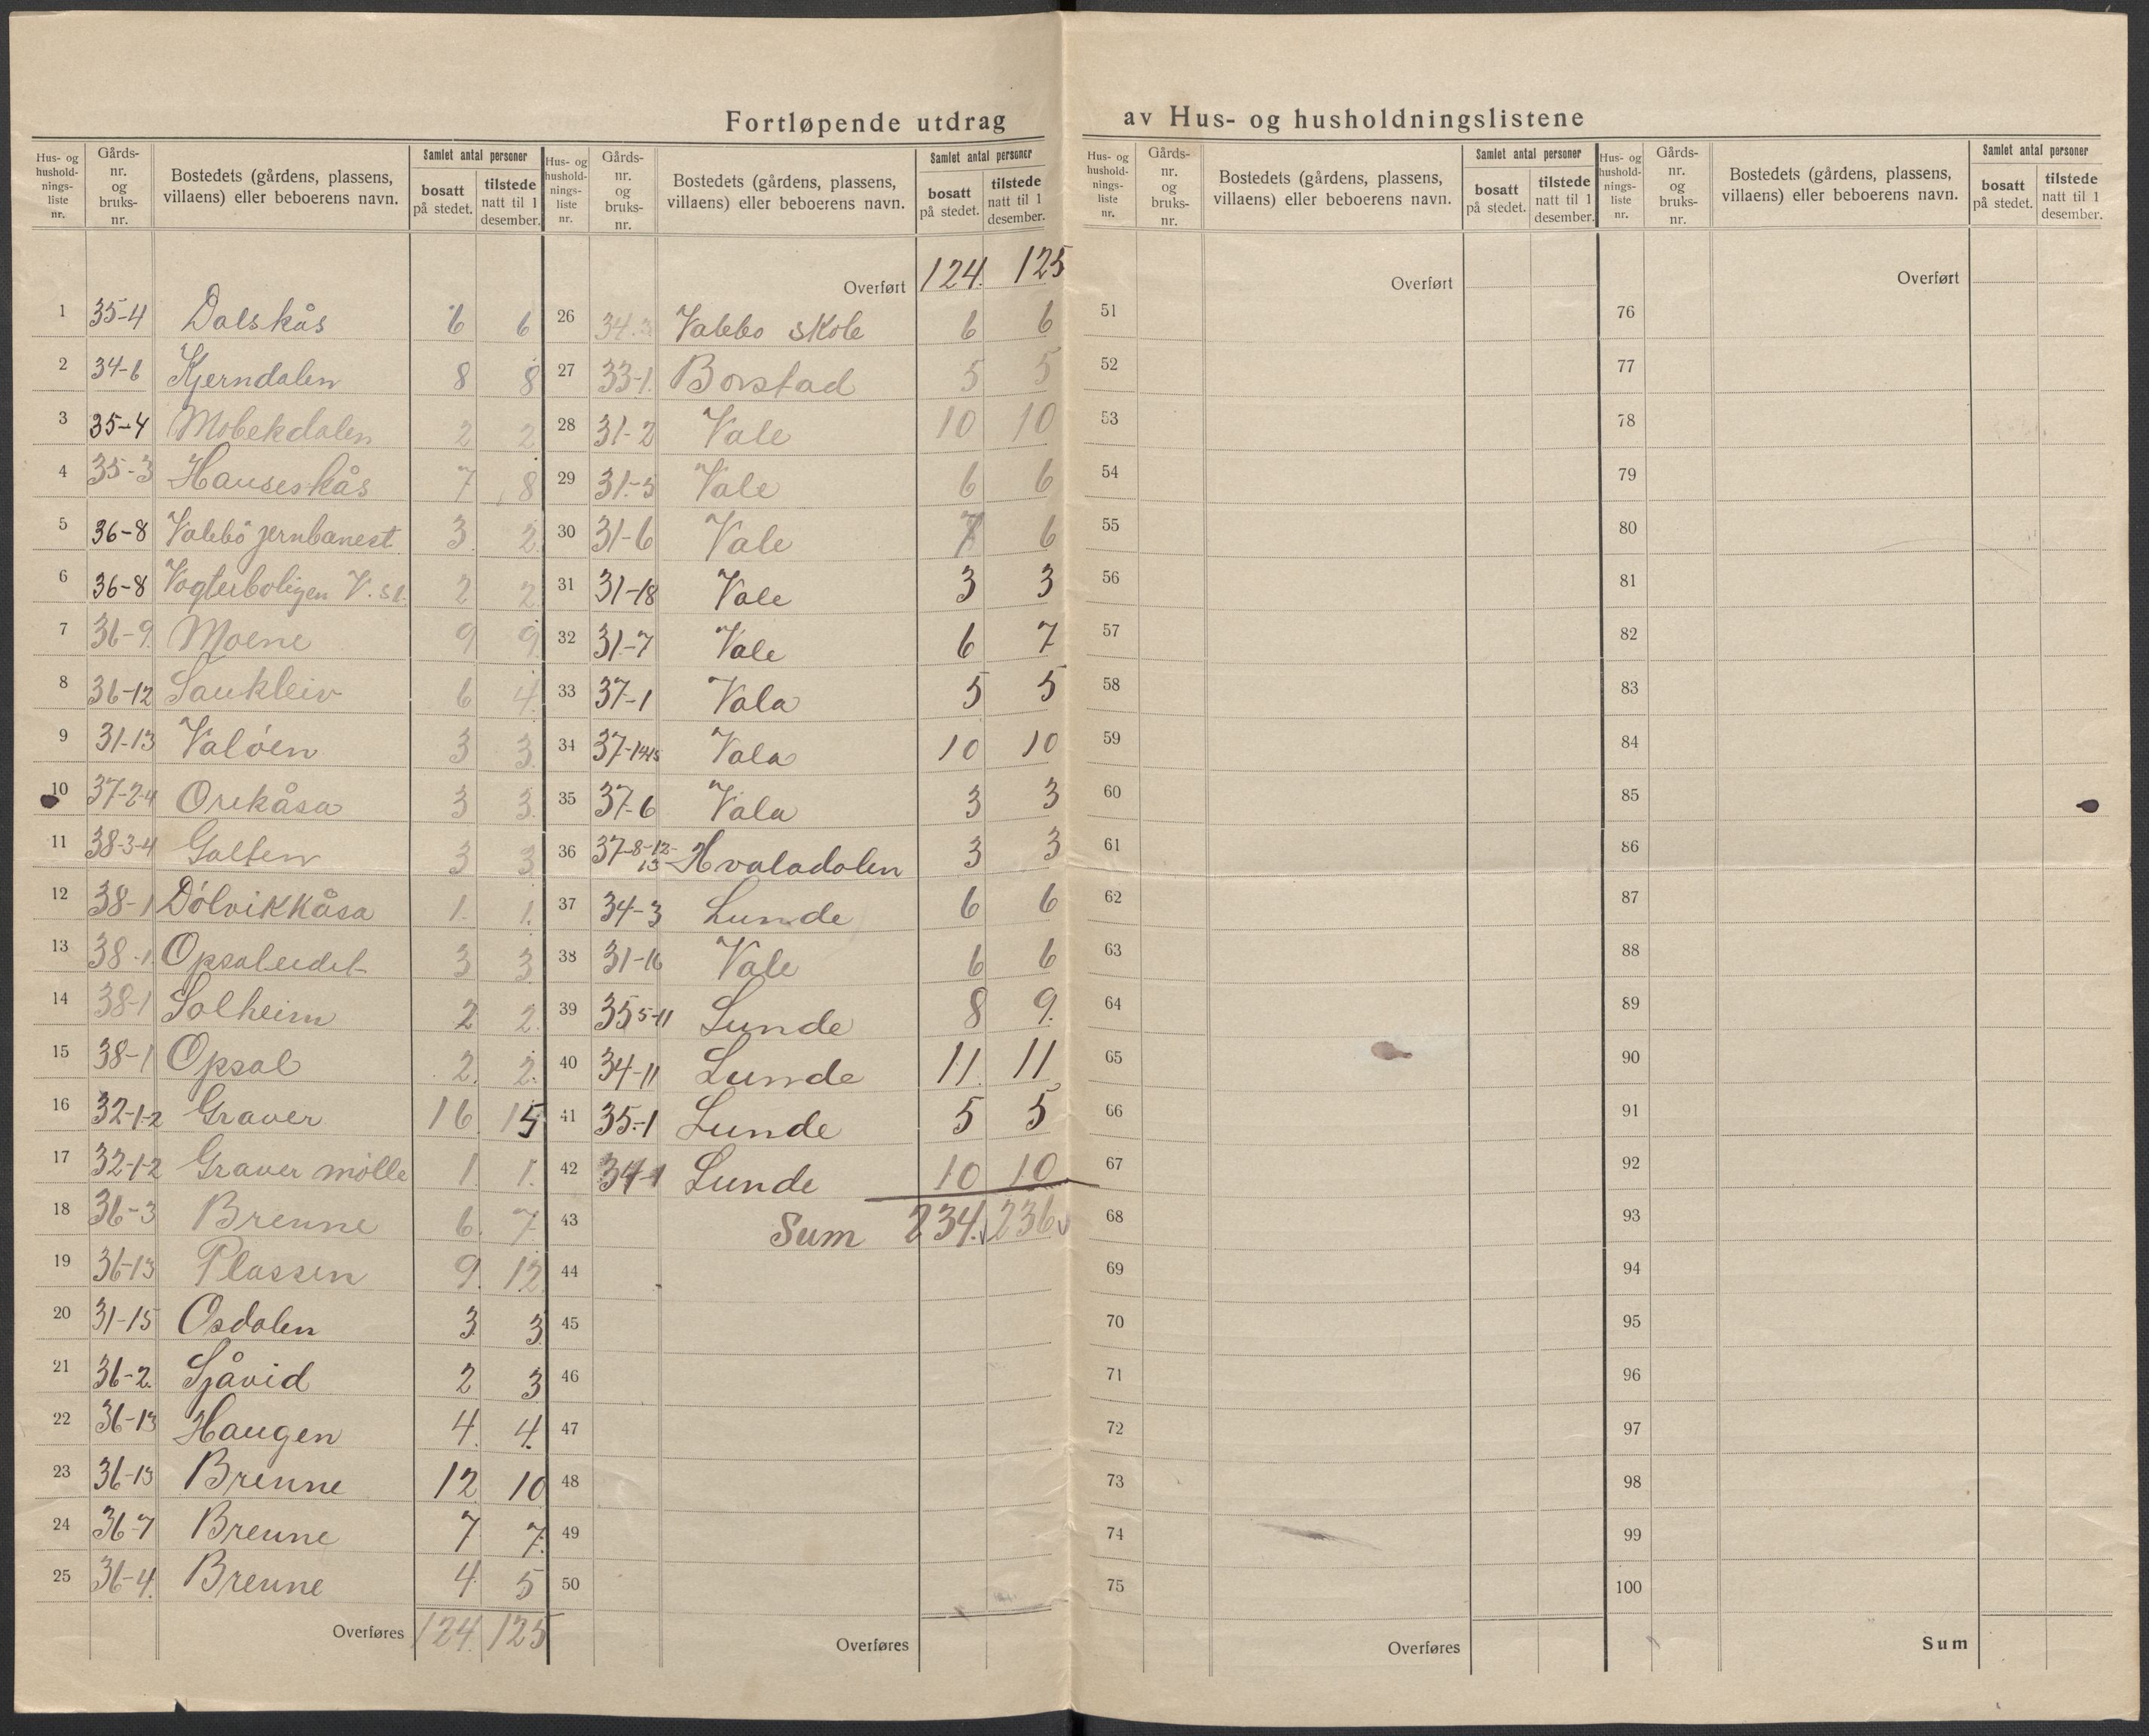 Fortløpende utdrag av Hus- og husholdningslistene
Hus- og hushold-nings-liste nr. | Gårds-nr. og bruks-nr. | Bostedets (gårdens, plassens, villaens) eller beboerens navn. | Samlet antal personer | bosatt på stedet. | tilstede natt til 1 desember.
1 35-4 Dalskås 6 6
2 34-6 Kjerndalen 8 8
3 35-4 Mobekdalen 2 2
4 35-3 Hauseskås 7 8
5 36-8 Valebö jernbanest. 3 2
6 36-8 Vogterboligen V. st. 2 2
7 36-9 Moene 9 9
8 36-12 Saukleiv 6 4
9 31-13 Valöen 3 3
10 37-2-4 Orekåsa 3 3
11 38-3-4 Galten 3 3
12 38-1 Dölvikkåsa 1 1
13 38-1 Opsaleidet 3 3
14 38-1 Solheim 2 2
15 38-1 Opsal 2 2
16 32-1-2 Graver 16 15
17 32-1-2 Graver mölle 1 1
18 36-3 Brenne 6 7
19 36-13 Plassen 9 12
20 31-15 Osdalen 3 3
21 36-2 Sjåvid 2 3
22 36-13 Haugen 4 4
23 36-13 Brenne 12 10
24 36-7 Brenne 7 7
25 36-4 Brenne 4 5
Overføres 124 125
Hus- og hushold-nings-liste nr. | Gårds-nr. og bruks-nr. | Bostedets (gårdens, plassens, villaens) eller beboerens navn. | Samlet antal personer | bosatt på stedet. | tilstede natt til 1 desember.
Overført 124. 125
26 34-3 Valebo skole 6 6
27 33-1 Borstad 5 5
28 31-2 Vale 10 10
29 31-3 Vale 6 6
30 31-6 Vale 7 6
31 31-18 Vale 3 3
32 31-7 Vale 6 7
33 37-1 Vala 5 5
34 37-14-15 Vala 10 10
35 37-6 Vala 3 3
36 37-8-12-13 Hvaladalen 3 3
37 34-3 Lunde 6 6
38 31-16 Vale 6 6
39 35 5-11 Lunde 8 9
40 34-11 Lunde 11 11
41 35-1 Lunde 5 5
42 34-1 Lunde 10 10
43 Sum 234. 236
44
45
46
47
48
49
50
Overføres
Hus- og hushold-nings-liste nr. | Gårds-nr. og bruks-nr. | Bostedets (gårdens, plassens, villaens) eller beboerens navn. | Samlet antal personer | bosatt på stedet. | tilstede natt til 1 desember.
Overført
51
52
53
54
55
56
57
58
59
60
61
62
63
64
65
66
67
68
69
70
71
72
73
74
75
Overføres
Hus- og hushold-nings-liste nr. | Gårds-nr. og bruks-nr. | Bostedets (gårdens, plassens, villaens) eller beboerens navn. | Samlet antal personer | bosatt på stedet. | tilstede natt til 1 desember.
Overført
76
77
78
79
80
81
82
83
84
85
86
87
88
89
90
91
92
93
94
95
96
97
98
99
100
Sum